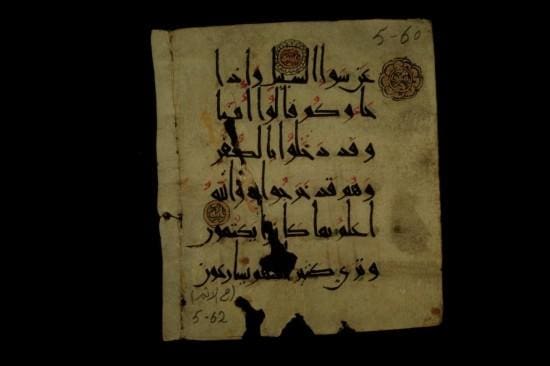 5-60
عن سوا السبيل واذا
جاوكم قالوا امنا
وقد دخلوا بالكفر
وهم قد خرجوا به والله
اعلم بما كانوا يكتمون
وترى كثيرا منهم يسارعون
5-62